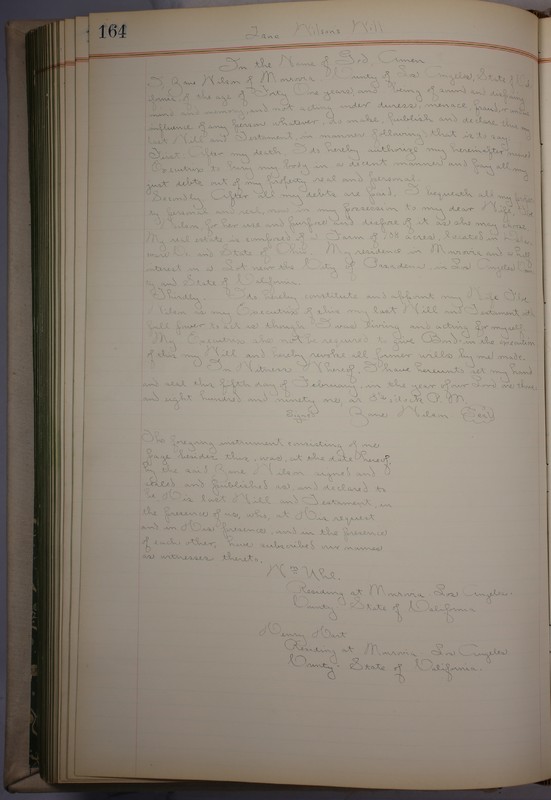 164 Zane Nelsons Will
In the Name of God, Amen
I Zane Nelson of Monrovia County of Los Angeles, State of
of the age of Forty One years, and being of sound and disposing
mind and memory, and not acting under duress, menace, fraud or undue
influence of any person whatever, do make, publish and declare this my
last Will and Testament, in manner following that is to say
First. After my death I do hereby authorize my hereinafter named
Executrix to bury my body in a decent manner and pay all my
just debts out of my property real and personal.
Secondly. After all my debts are paid. I bequeath all my
personal and real, now in my possession to my dear Wife,
Nelson for her use and purpose and dispose of it as she may choose
My real estate is composed of a Farm of acres, located in
State of My residence in Monrovia and a half
interest in a Lot near the City of Pasadena, in Los Angeles
and State of California.
Thirdly. I do hereby constitute and appoint my Wife
Nelson as my Executrix of this my last Will and Testament with
full power to act as though I was living and acting for myself.
My Executrix shall not be required to give Bond, in the execution
of this my Will and hereby revoke all former wills by me made.
In Witness Whereof, I have hereunto set my hand
and seal this fifth day of February, in the year of our Lord one thousand
and eight hundred and ninety at A.M.
Signed Zane Nelson Seal
The foregoing instrument consisting of one
page besides this, was, at the date hereof,
by the said Zane Nelson signed and
sealed and published as, and declared to
be His last Will and Testament, in
the presence of us, who, at His request
and in His presence, and in the presence
of each other, have subscribed our names
as witnesses thereto.
Residing at Monrovia Los Angeles
County, State of California
Henry
Residing at Monrovia Los Angeles
County State of California.